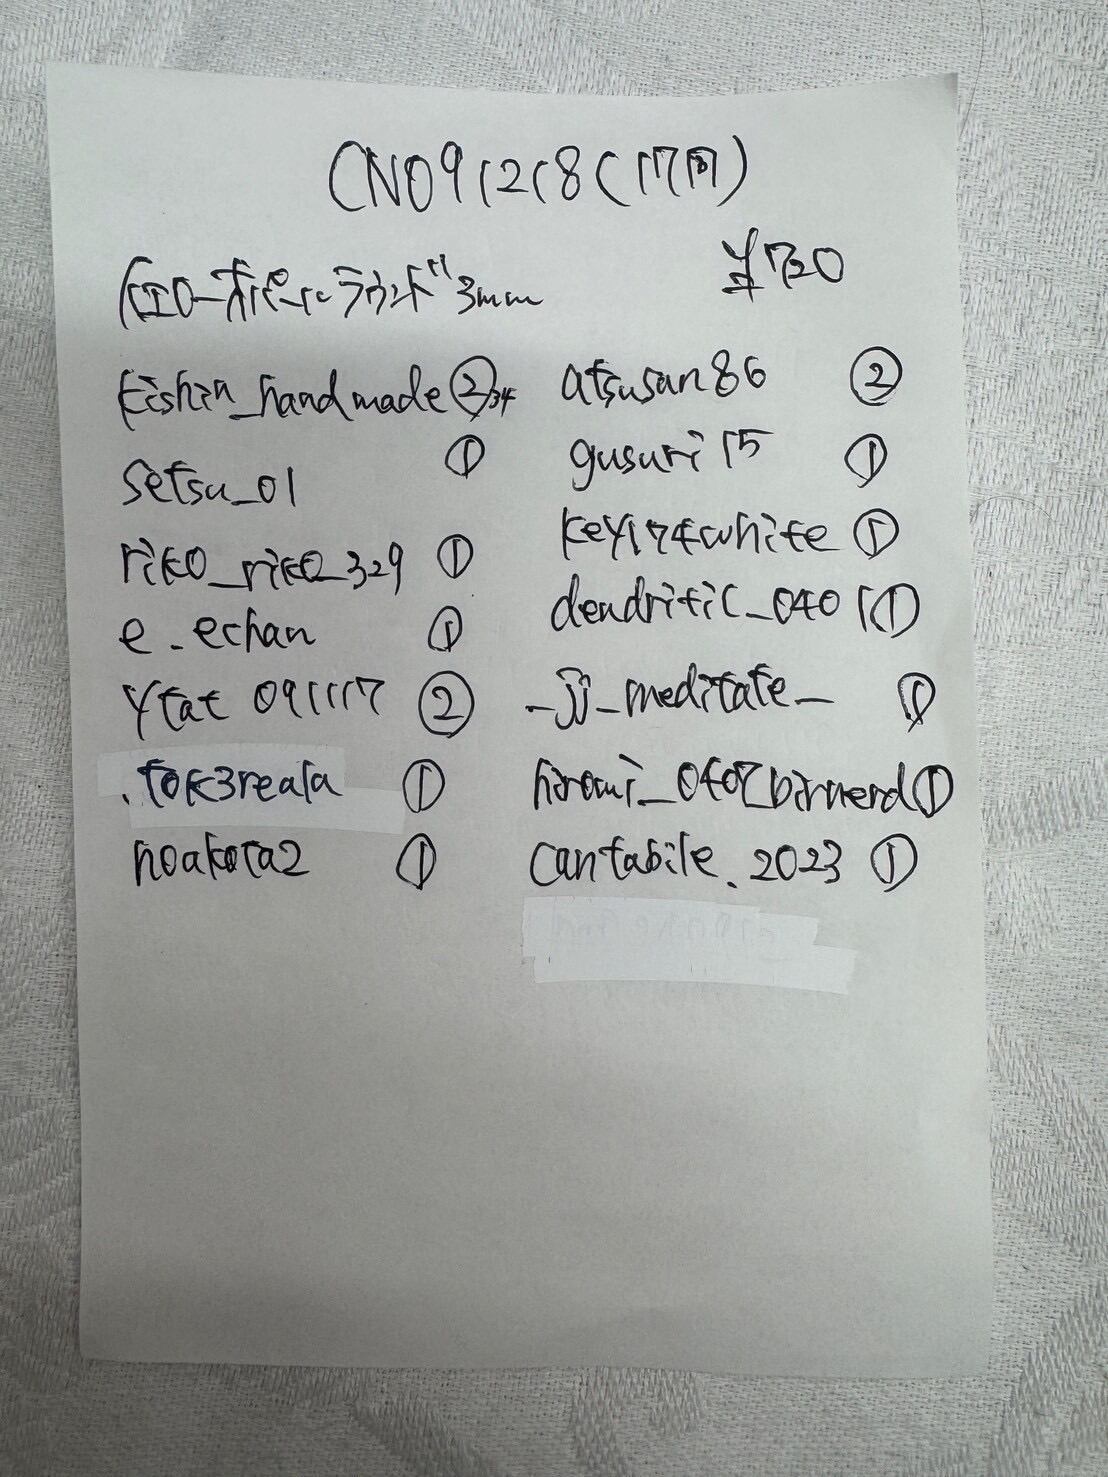 CN091218(17円)
イエローオパールラウンド3mm
¥720
kishin_handmade ②34
setsu_01 ①
riko_riko_329 ①
e.echan ①
ytat 091117 ②
.tok3reala ①
noakota2 ①
atsusan86 ②
gusuri15 ①
key174white ①
dendritic_0401 ①
_jj_meditate_ ①
cantabile.2023 ①